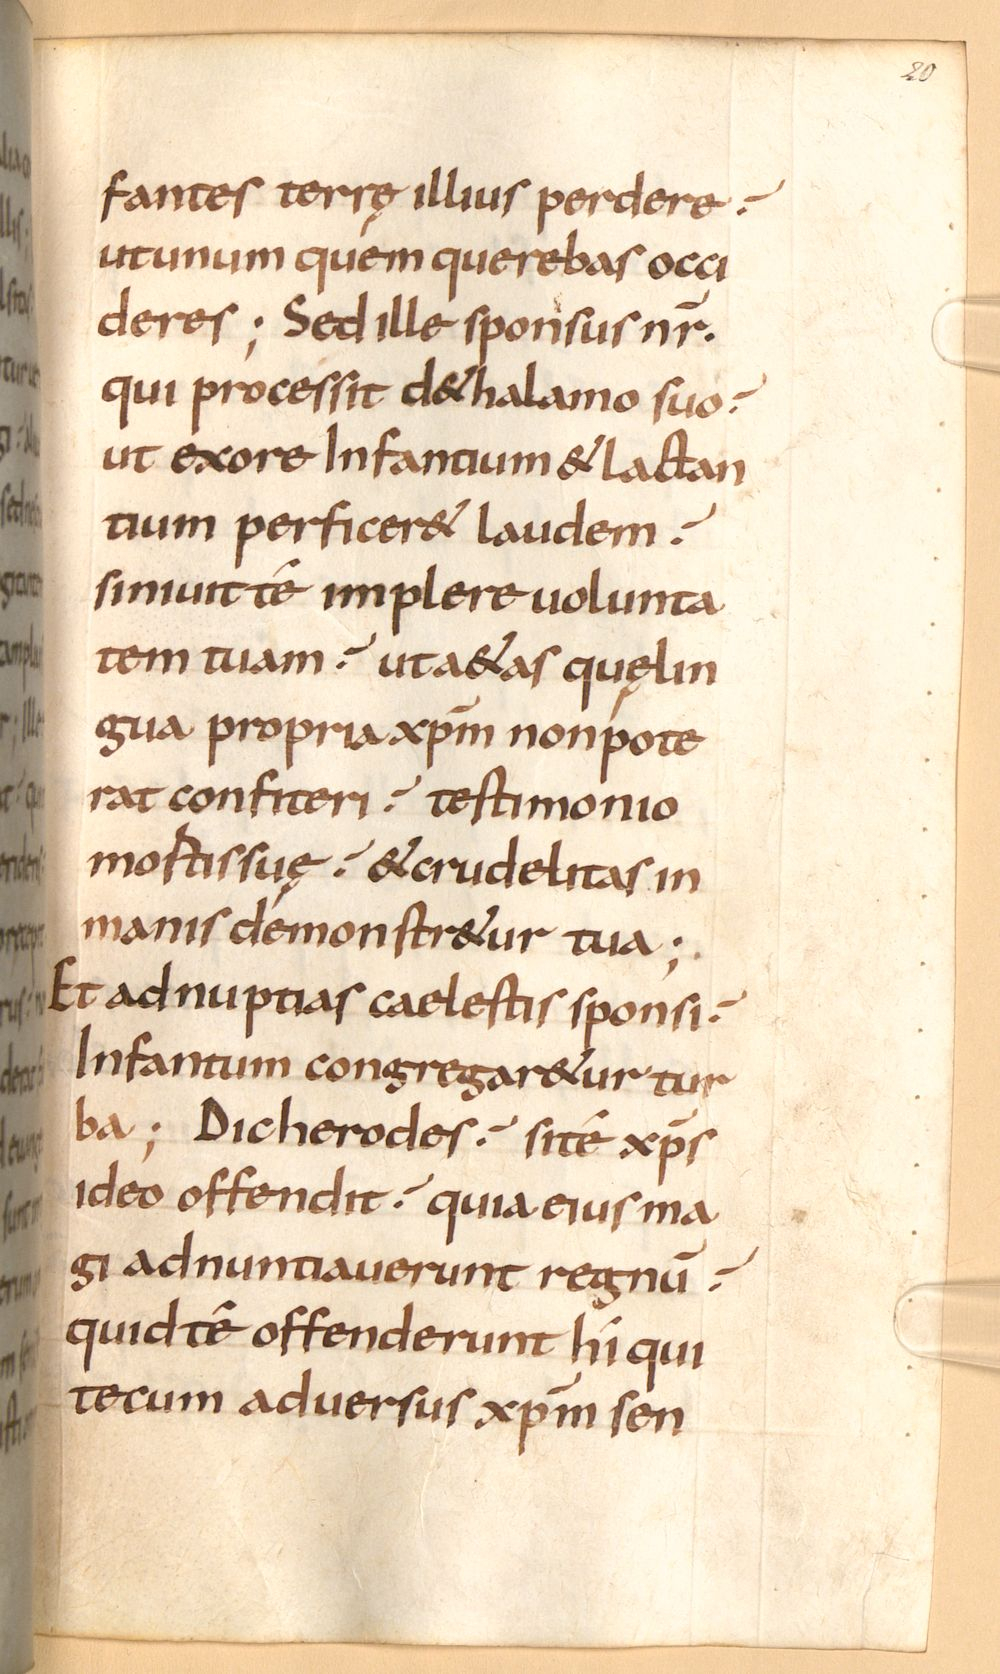 20
fantes terrę illius perdere.
ut unum quem querebas occi
deres; Sed ille sponsus nr̄.
qui processit d& halamo suo.
ut ex ore Infantium & lactan
tium perficer& laudem.
siniuit té implere uolunta
tem tuam. ut a&as quę lin
gua propria xp̄m non pote
rat confiteri. testimonio
mostis suę. & crudelitas in
manis démonstr&ur tua;.
Et ad nuptias caelestis sponsi.
Infantum congregar&ur tur
ba; Dic herodes. si té xp̄s
ideo offendit. quia eius ma
gi adnuntiauerunt regnū.
quid té offenderunt hí qui
tecum aduersus xp̄m sen